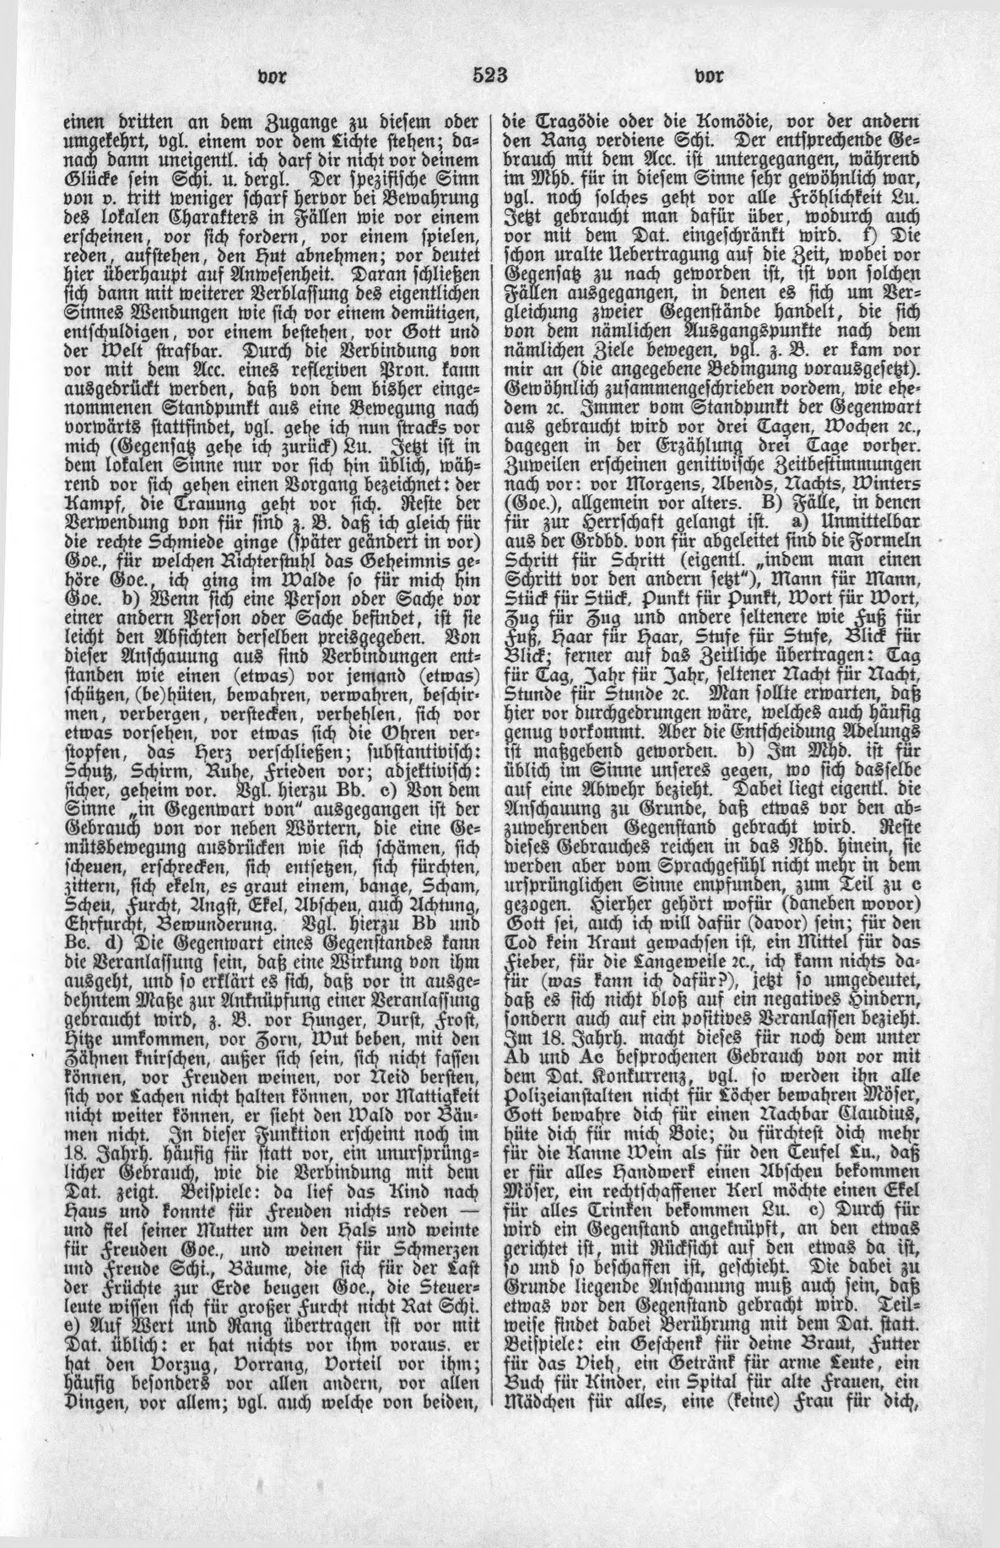 vor 523 vor
einen dritten an dem Zugange zu diesem oder
umgekehrt, vgl. einem vor dem Lichte stehen; da-
nach dann uneigentl. ich darf dir nicht vor deinem
Glücke sein Schi. u. dergl. Der spezifische Sinn
von v. tritt weniger scharf hervor bei Bewahrung
des lokalen Charakters in Fällen wie vor einem
erscheinen, vor sich fordern, vor einem spielen,
reden, aufstehen, den Hut abnehmen; vor deutet
hier überhaupt auf Anwesenheit. Daran schließen
sich dann mit weiterer Verblassung des eigentlichen
Sinnes Wendungen wie sich vor einem demütigen,
entschuldigen, vor einem bestehen, vor Gott und
der Welt strafbar. Durch die Verbindung von
vor mit dem Acc. eines reflexiven Pron. kann
ausgedrückt werden, daß von dem bisher einge-
nommenen Standpunkt aus eine Bewegung nach
vorwärts stattfindet, vgl. gehe ich nun stracks vor
mich (Gegensatz gehe ich zurück) Lu. Jetzt ist in
dem lokalen Sinne nur vor sich hin üblich, wäh-
rend vor sich gehen einen Vorgang bezeichnet: der
Kampf, die Trauung geht vor sich. Reste der
Verwendung von für sind z. B. daß ich gleich für
die rechte Schmiede ginge (später geändert in vor)
Goe., für welchen Richterstuhl das Geheimnis ge-
höre Goe., ich ging im Walde so für mich hin
Goe. b) Wenn sich eine Person oder Sache vor
einer andern Person oder Sache befindet, ist sie
leicht den Absichten derselben preisgegeben. Von
dieser Anschauung aus sind Verbindungen ent-
standen wie einen (etwas) vor jemand (etwas)
schützen, (be)hüten, bewahren, verwahren, beschir-
men, verbergen, verstecken, verhehlen, sich vor
etwas vorsehen, vor etwas sich die Ohren ver-
stopfen, das Herz verschließen; substantivisch:
Schutz, Schirm, Ruhe, Frieden vor; adjektivisch:
sicher, geheim vor. Vgl. hierzu Bb. c) Von dem
Sinne „in Gegenwart von“ ausgegangen ist der
Gebrauch von vor neben Wörtern, die eine Ge-
mütsbewegung ausdrücken wie sich schämen, sich
scheuen, erschrecken, sich entsetzen, sich fürchten,
zittern, sich ekeln, es graut einem, bange, Scham,
Scheu, Furcht, Angst, Ekel, Abscheu, auch Achtung,
Ehrfurcht, Bewunderung. Vgl. hierzu Bb und
Bc. d) Die Gegenwart eines Gegenstandes kann
die Veranlassung sein, daß eine Wirkung von ihm
ausgeht, und so erklärt es sich, daß vor in ausge-
dehntem Maße zur Anknüpfung einer Veranlassung
gebraucht wird, z. B. vor Hunger, Durst, Frost,
Hitze umkommen, vor Zorn, Wut beben, mit den
Zähnen knirschen, außer sich sein, sich nicht fassen
können, vor Freuden weinen, vor Neid bersten,
sich vor Lachen nicht halten können, vor Mattigkeit
nicht weiter können, er sieht den Wald vor Bäu-
men nicht. In dieser Funktion erscheint noch im
18. Jahrh. häufig für statt vor, ein unursprüng-
licher Gebrauch, wie die Verbindung mit dem
Dat. zeigt. Beispiele: da lief das Kind nach
Haus und konnte für Freuden nichts reden —
und fiel seiner Mutter um den Hals und weinte
für Freuden Goe., und weinen für Schmerzen
und Freude Schi., Bäume, die sich für der Last
der Früchte zur Erde beugen Goe., die Steuer-
leute wissen sich für großer Furcht nicht Rat Schi.
e) Auf Wert und Rang übertragen ist vor mit
Dat. üblich: er hat nichts vor ihm voraus. er
hat den Vorzug, Vorrang, Vorteil vor ihm;
häufig besonders vor allen andern, vor allen
Dingen, vor allem; vgl. auch welche von beiden,
die Tragödie oder die Komödie, vor der andern
den Rang verdiene Schi. Der entsprechende Ge-
brauch mit dem Acc. ist untergegangen, während
im Mhd. für in diesem Sinne sehr gewöhnlich war,
vgl. noch solches geht vor alle Fröhlichkeit Lu.
Jetzt gebraucht man dafür über, wodurch auch
vor mit dem Dat. eingeschränkt wird. f) Die
schon uralte Uebertragung auf die Zeit, wobei vor
Gegensatz zu nach geworden ist, ist von solchen
Fällen ausgegangen, in denen es sich um Ver-
gleichung zweier Gegenstände handelt, die sich
von dem nämlichen Ausgangspunkte nach dem
nämlichen Ziele bewegen, vgl. z. B. er kam vor
mir an (die angegebene Bedingung vorausgesetzt).
Gewöhnlich zusammengeschrieben vordem, wie ehe-
dem ꝛc. Immer vom Standpunkt der Gegenwart
aus gebraucht wird vor drei Tagen, Wochen ꝛc.,
dagegen in der Erzählung drei Tage vorher.
Zuweilen erscheinen genitivische Zeitbestimmungen
nach vor: vor Morgens, Abends, Nachts, Winters
(Goe.), allgemein vor alters. B) Fälle, in denen
für zur Herrschaft gelangt ist. a) Unmittelbar
aus der Grdbd. von für abgeleitet sind die Formeln
Schritt für Schritt (eigentl. „indem man einen
Schritt vor den andern setzt“), Mann für Mann,
Stück für Stück, Punkt für Punkt, Wort für Wort,
Zug für Zug und andere seltenere wie Fuß für
Fuß, Haar für Haar, Stufe für Stufe, Blick für
Blick; ferner auf das Zeitliche übertragen: Tag
für Tag, Jahr für Jahr, seltener Nacht für Nacht,
Stunde für Stunde ꝛc. Man sollte erwarten, daß
hier vor durchgedrungen wäre, welches auch häufig
genug vorkommt. Aber die Entscheidung Adelungs
ist maßgebend geworden. b) Im Mhd. ist für
üblich im Sinne unseres gegen, wo sich dasselbe
auf eine Abwehr bezieht. Dabei liegt eigentl. die
Anschauung zu Grunde, daß etwas vor den ab-
zuwehrenden Gegenstand gebracht wird. Reste
dieses Gebrauches reichen in das Nhd. hinein, sie
werden aber vom Sprachgefühl nicht mehr in dem
ursprünglichen Sinne empfunden, zum Teil zu c
gezogen. Hierher gehört wofür (daneben wovor)
Gott sei, auch ich will dafür (davor) sein; für den
Tod kein Kraut gewachsen ist, ein Mittel für das
Fieber, für die Langeweile ꝛc., ich kann nichts da-
für (was kann ich dafür?), jetzt so umgedeutet,
daß es sich nicht bloß auf ein negatives Hindern,
sondern auch auf ein positives Veranlassen bezieht.
Im 18. Jahrh. macht dieses für noch dem unter
Ab und Ac besprochenen Gebrauch von vor mit
dem Dat. Konkurrenz, vgl. so werden ihn alle
Polizeianstalten nicht für Löcher bewahren Möser,
Gott bewahre dich für einen Nachbar Claudius,
hüte dich für mich Boie; du fürchtest dich mehr
für die Kanne Wein als für den Teufel Lu., daß
er für alles Handwerk einen Abscheu bekommen
Möser, ein rechtschaffener Kerl möchte einen Ekel
für alles Trinken bekommen Lu. c) Durch für
wird ein Gegenstand angeknüpft, an den etwas
gerichtet ist, mit Rücksicht auf den etwas da ist,
so und so beschaffen ist, geschieht. Die dabei zu
Grunde liegende Anschauung muß auch sein, daß
etwas vor den Gegenstand gebracht wird. Teil-
weise findet dabei Berührung mit dem Dat. statt.
Beispiele: ein Geschenk für deine Braut, Futter
für das Vieh, ein Getränk für arme Leute, ein
Buch für Kinder, ein Spital für alte Frauen, ein
Mädchen für alles, eine (keine) Frau für dich,